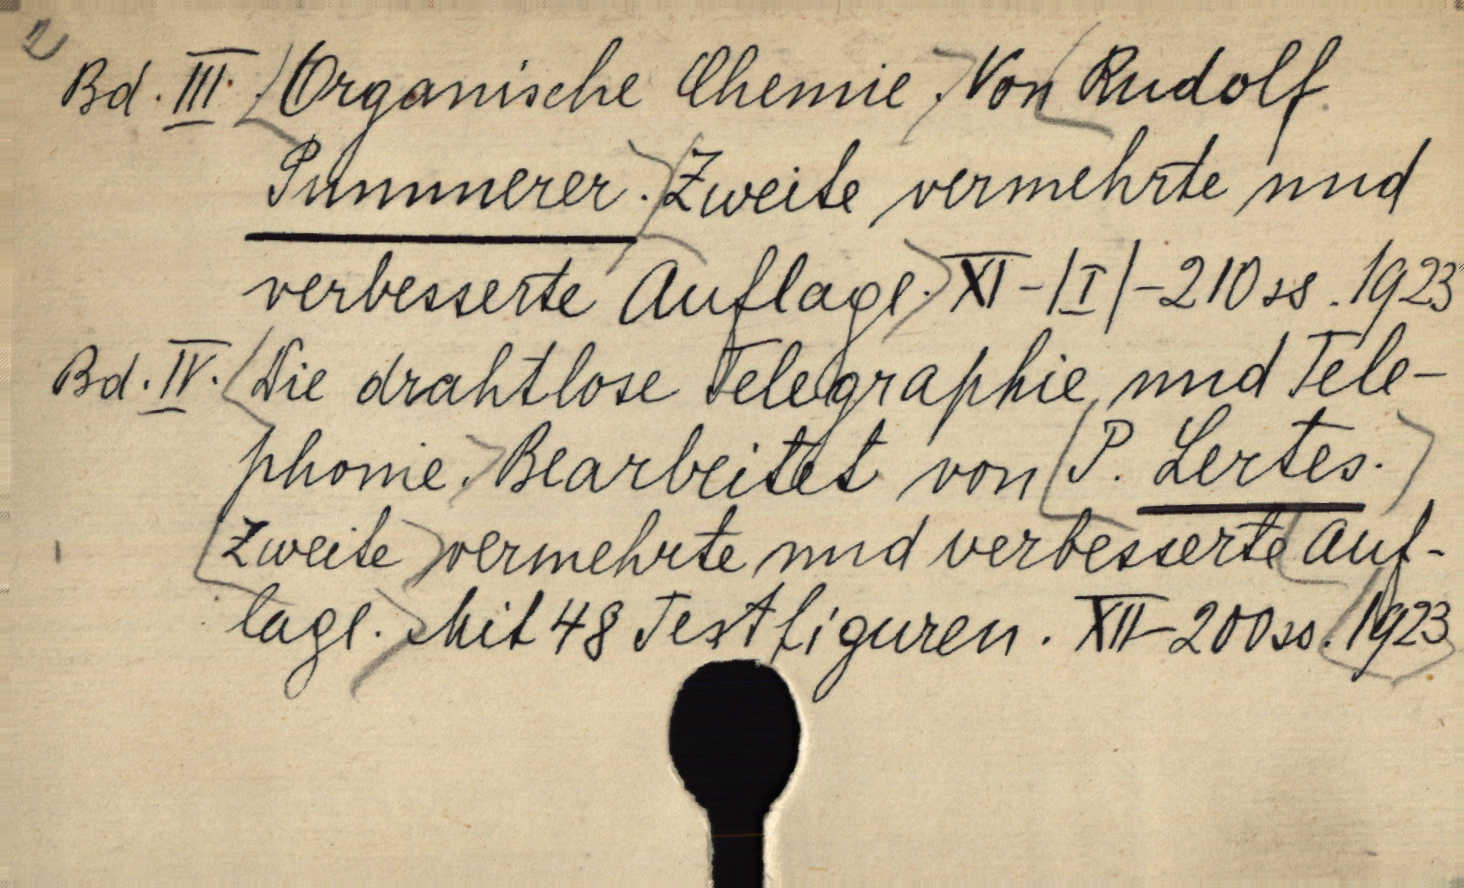 2
Bd. III. Organische Chemie. Von Rudolf
Pummerer. Zweite vermehrte und
verbesserte Auflage. XI-|I|-210 ss. 1923
Bd. IV. Die drahtlose Telegraphie und Tele-
phonie. Bearbeitet von P. Lertes.
Zweite vermehrte und verbesserte Auf-
lage. Mit 48 Textfiguren. XII-200 ss. 1923